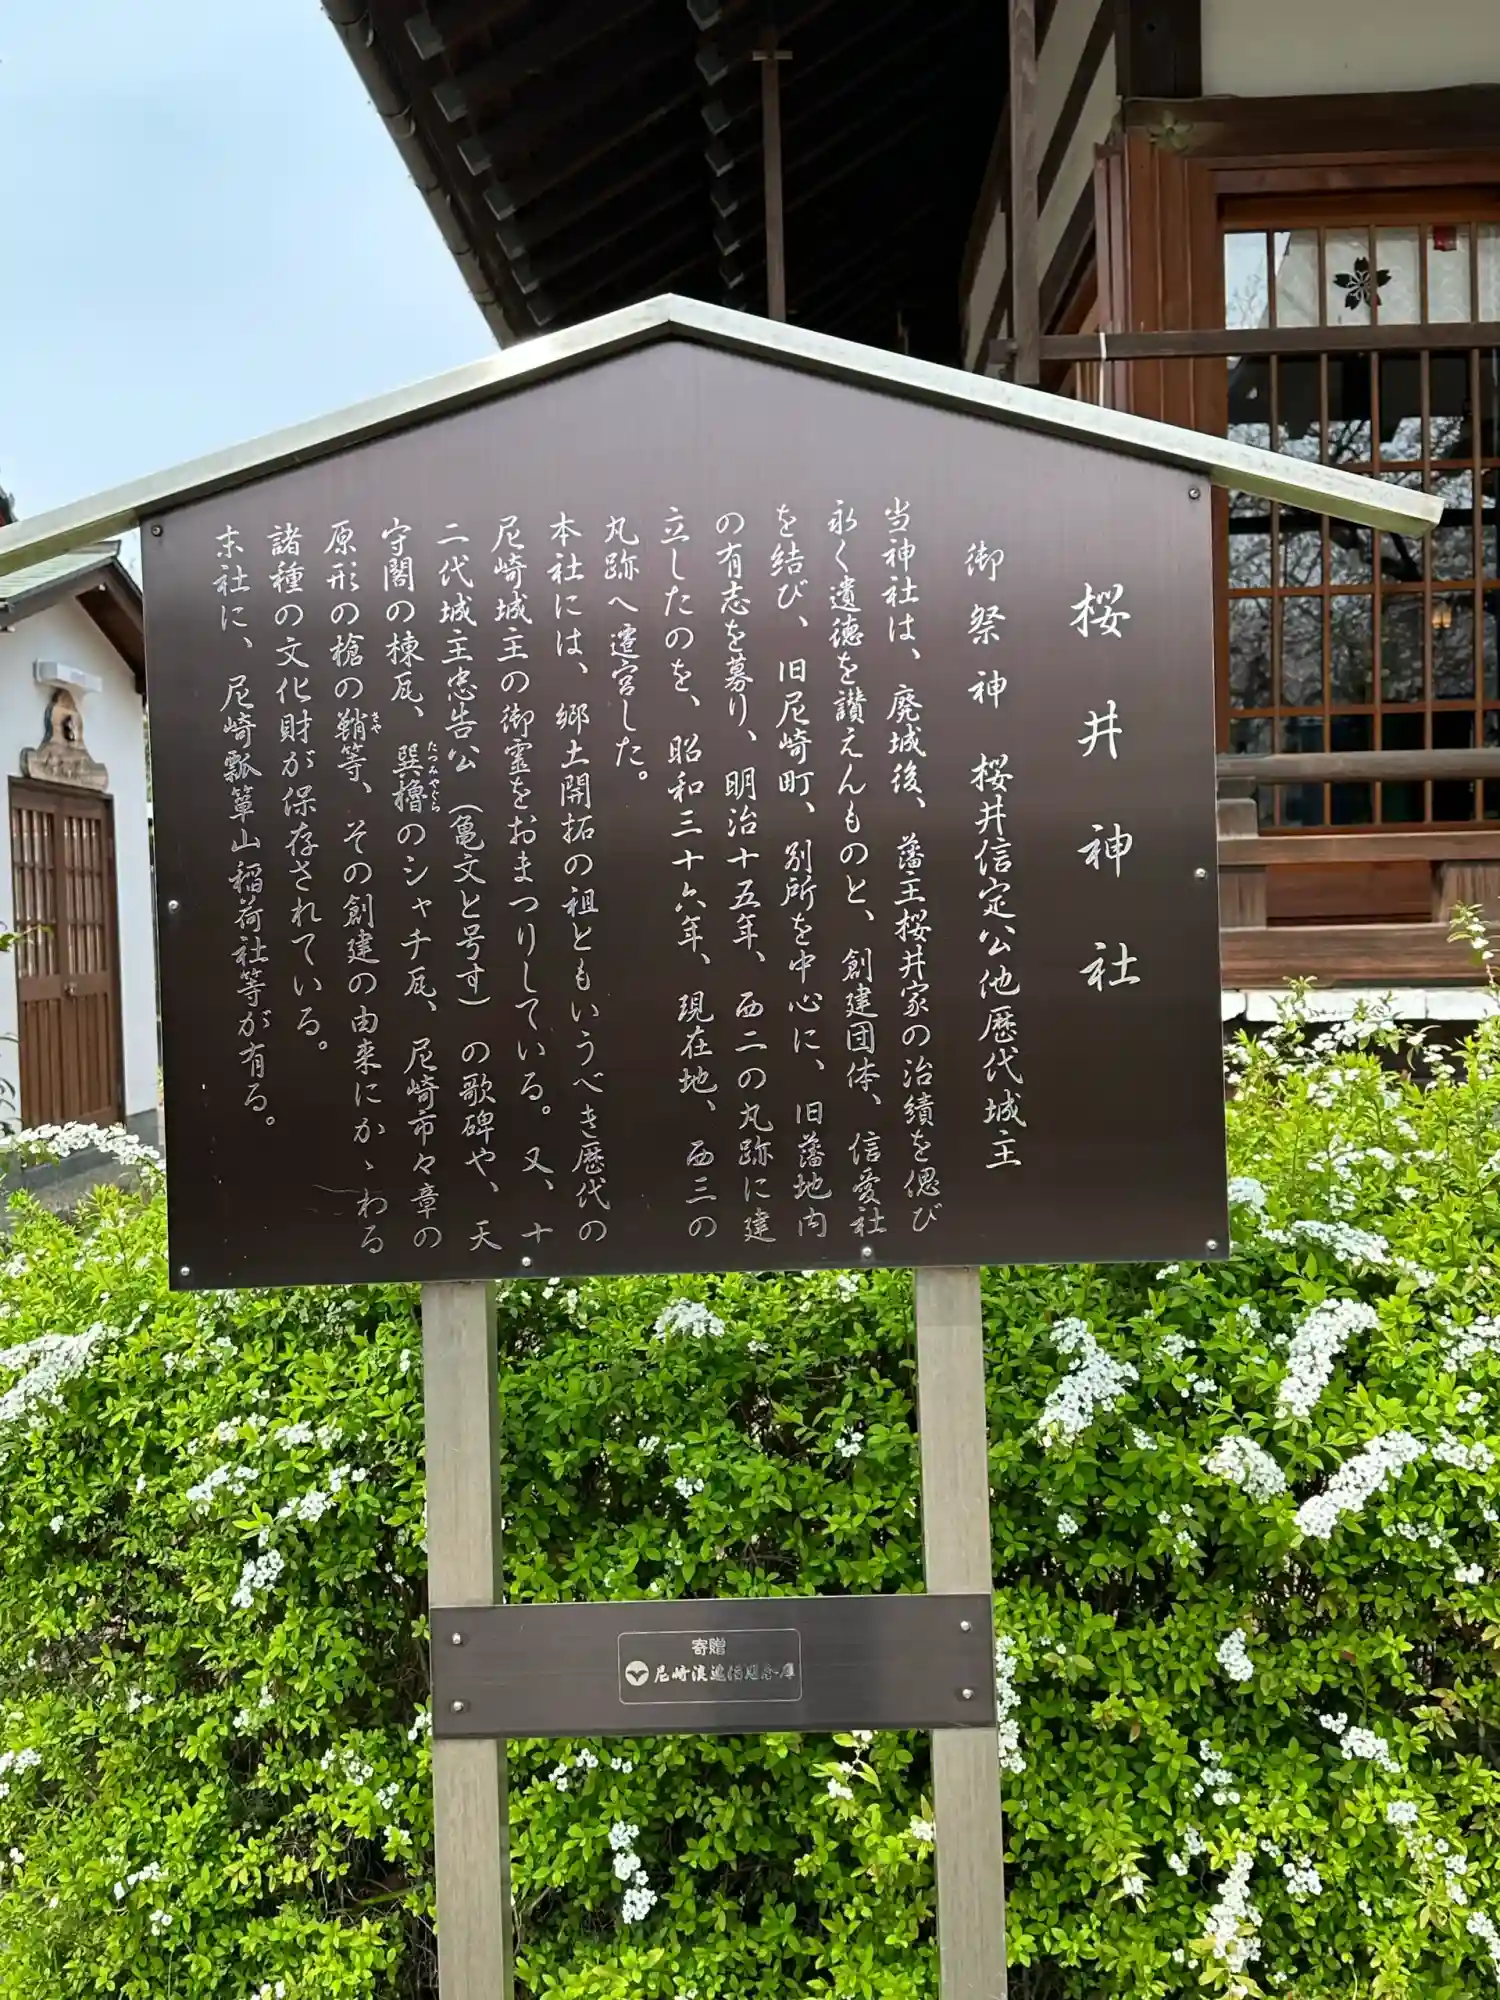 桜井神社
御祭神 桜井信定公他歴代城主
当神社は、廃城後、藩主桜井家の治績を偲び
永く遺徳を讃えんものと、創建団体、信愛社
を結び、旧尼崎町、別所を中心に、旧藩地内
の有志を募り、明治十五年、西二の丸跡に建
立したのを、昭和三十六年、現在地、西三の
丸跡へ遷宮した。
本社には、郷土開拓の祖ともいうべき歴代の
尼崎城主の御霊をおまつりしている。又、十
二代城主忠告公（亀文と号す）の歌碑や、天
守閣の棟瓦、巽櫓のシャチ瓦、尼崎市々章の
たつみやぐら
原形の槍の鞘等、その創建の由来にかゝわる
さや
諸種の文化財が保存されている。
末社に、尼崎瓢箪山稲荷社等が有る。
寄贈
尼崎浪速信用金庫